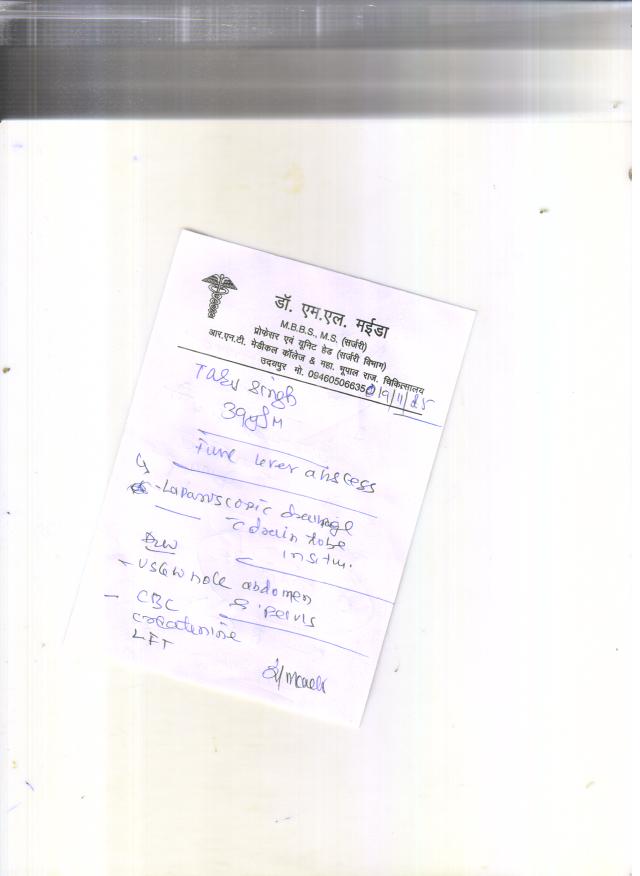 डॉ. एम.एल. मईडा
M.B.B.S., M.S. (सर्जरी)
प्रोफेसर एवं यूनिट हेड (सर्जरी विभाग)
आर.एन.टी. मेडीकल कॉलेज & महा. भूपाल राज. चिकित्सालय
उदयपुर मो. 09460506635
Singh
39y/M
liver abscess
- Laparoscopic drainage
c drain tube
insitu.
Adv
- USG whole abdomen
& pelvis
- CBC
creatinine
LFT